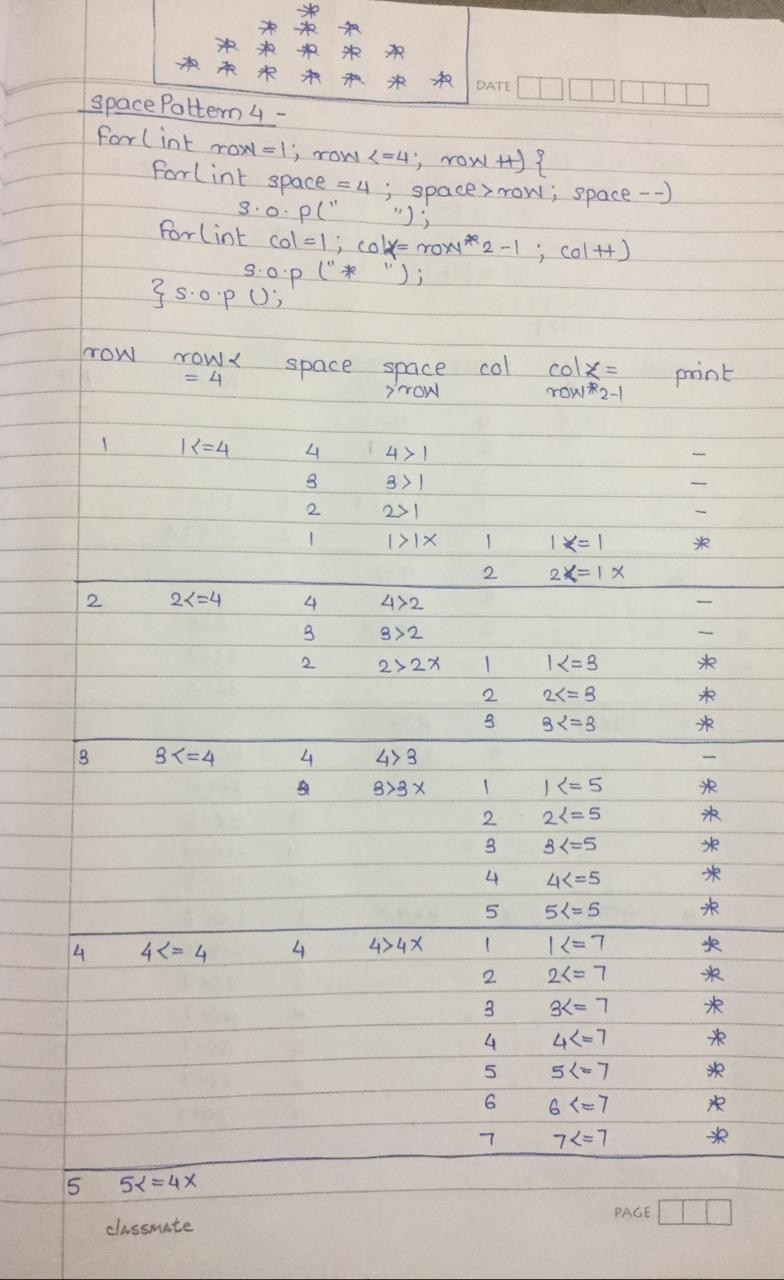 *
* * *
* * * * *
* * * * * * *
DATE
space Pattern 4 -
for(int row=1; row<=4; row++){
for(int space=4; space>row; space--)
s.o.p(" ");
for(int col=1; col<=row*2-1; col++)
s.o.p("* ");
} s.o.p();
row row< space space col col<= print
= 4 >row row*2-1
1 1<=4 4 4>1 -
3 3>1 -
2 2>1 -
1 1>1x 1 1<=1 *
2 2<=1 x
2 2<=4 4 4>2 -
3 3>2 -
2 2>2x 1 1<=3 *
2 2<=3 *
3 3<=3 *
3 3<=4 4 4>3 -
3 3>3x 1 1<=5 *
2 2<=5 *
3 3<=5 *
4 4<=5 *
5 5<=5 *
4 4<=4 4 4>4x 1 1<=7 *
2 2<=7 *
3 3<=7 *
4 4<=7 *
5 5<=7 *
6 6<=7 *
7 7<=7 *
5 5<=4x
PAGE
classmate